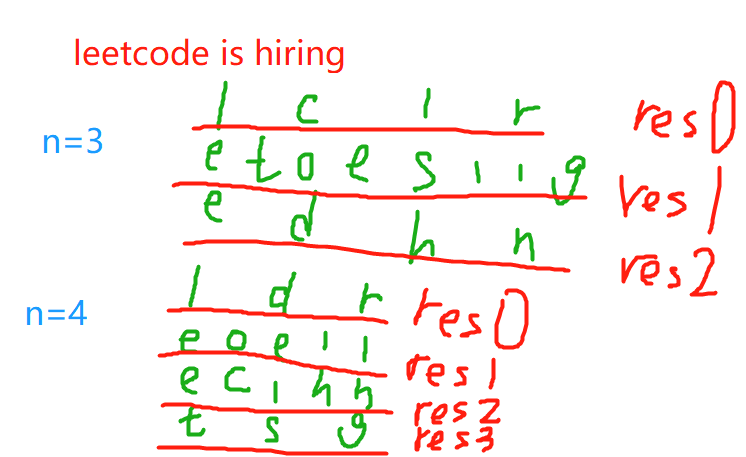 leetcode is hiring
n=3
l c i r res0
e t o e s i i g res1
e d h n res2
n=4
l d r res0
e o e i i res1
e c i h n res2
t s g res3